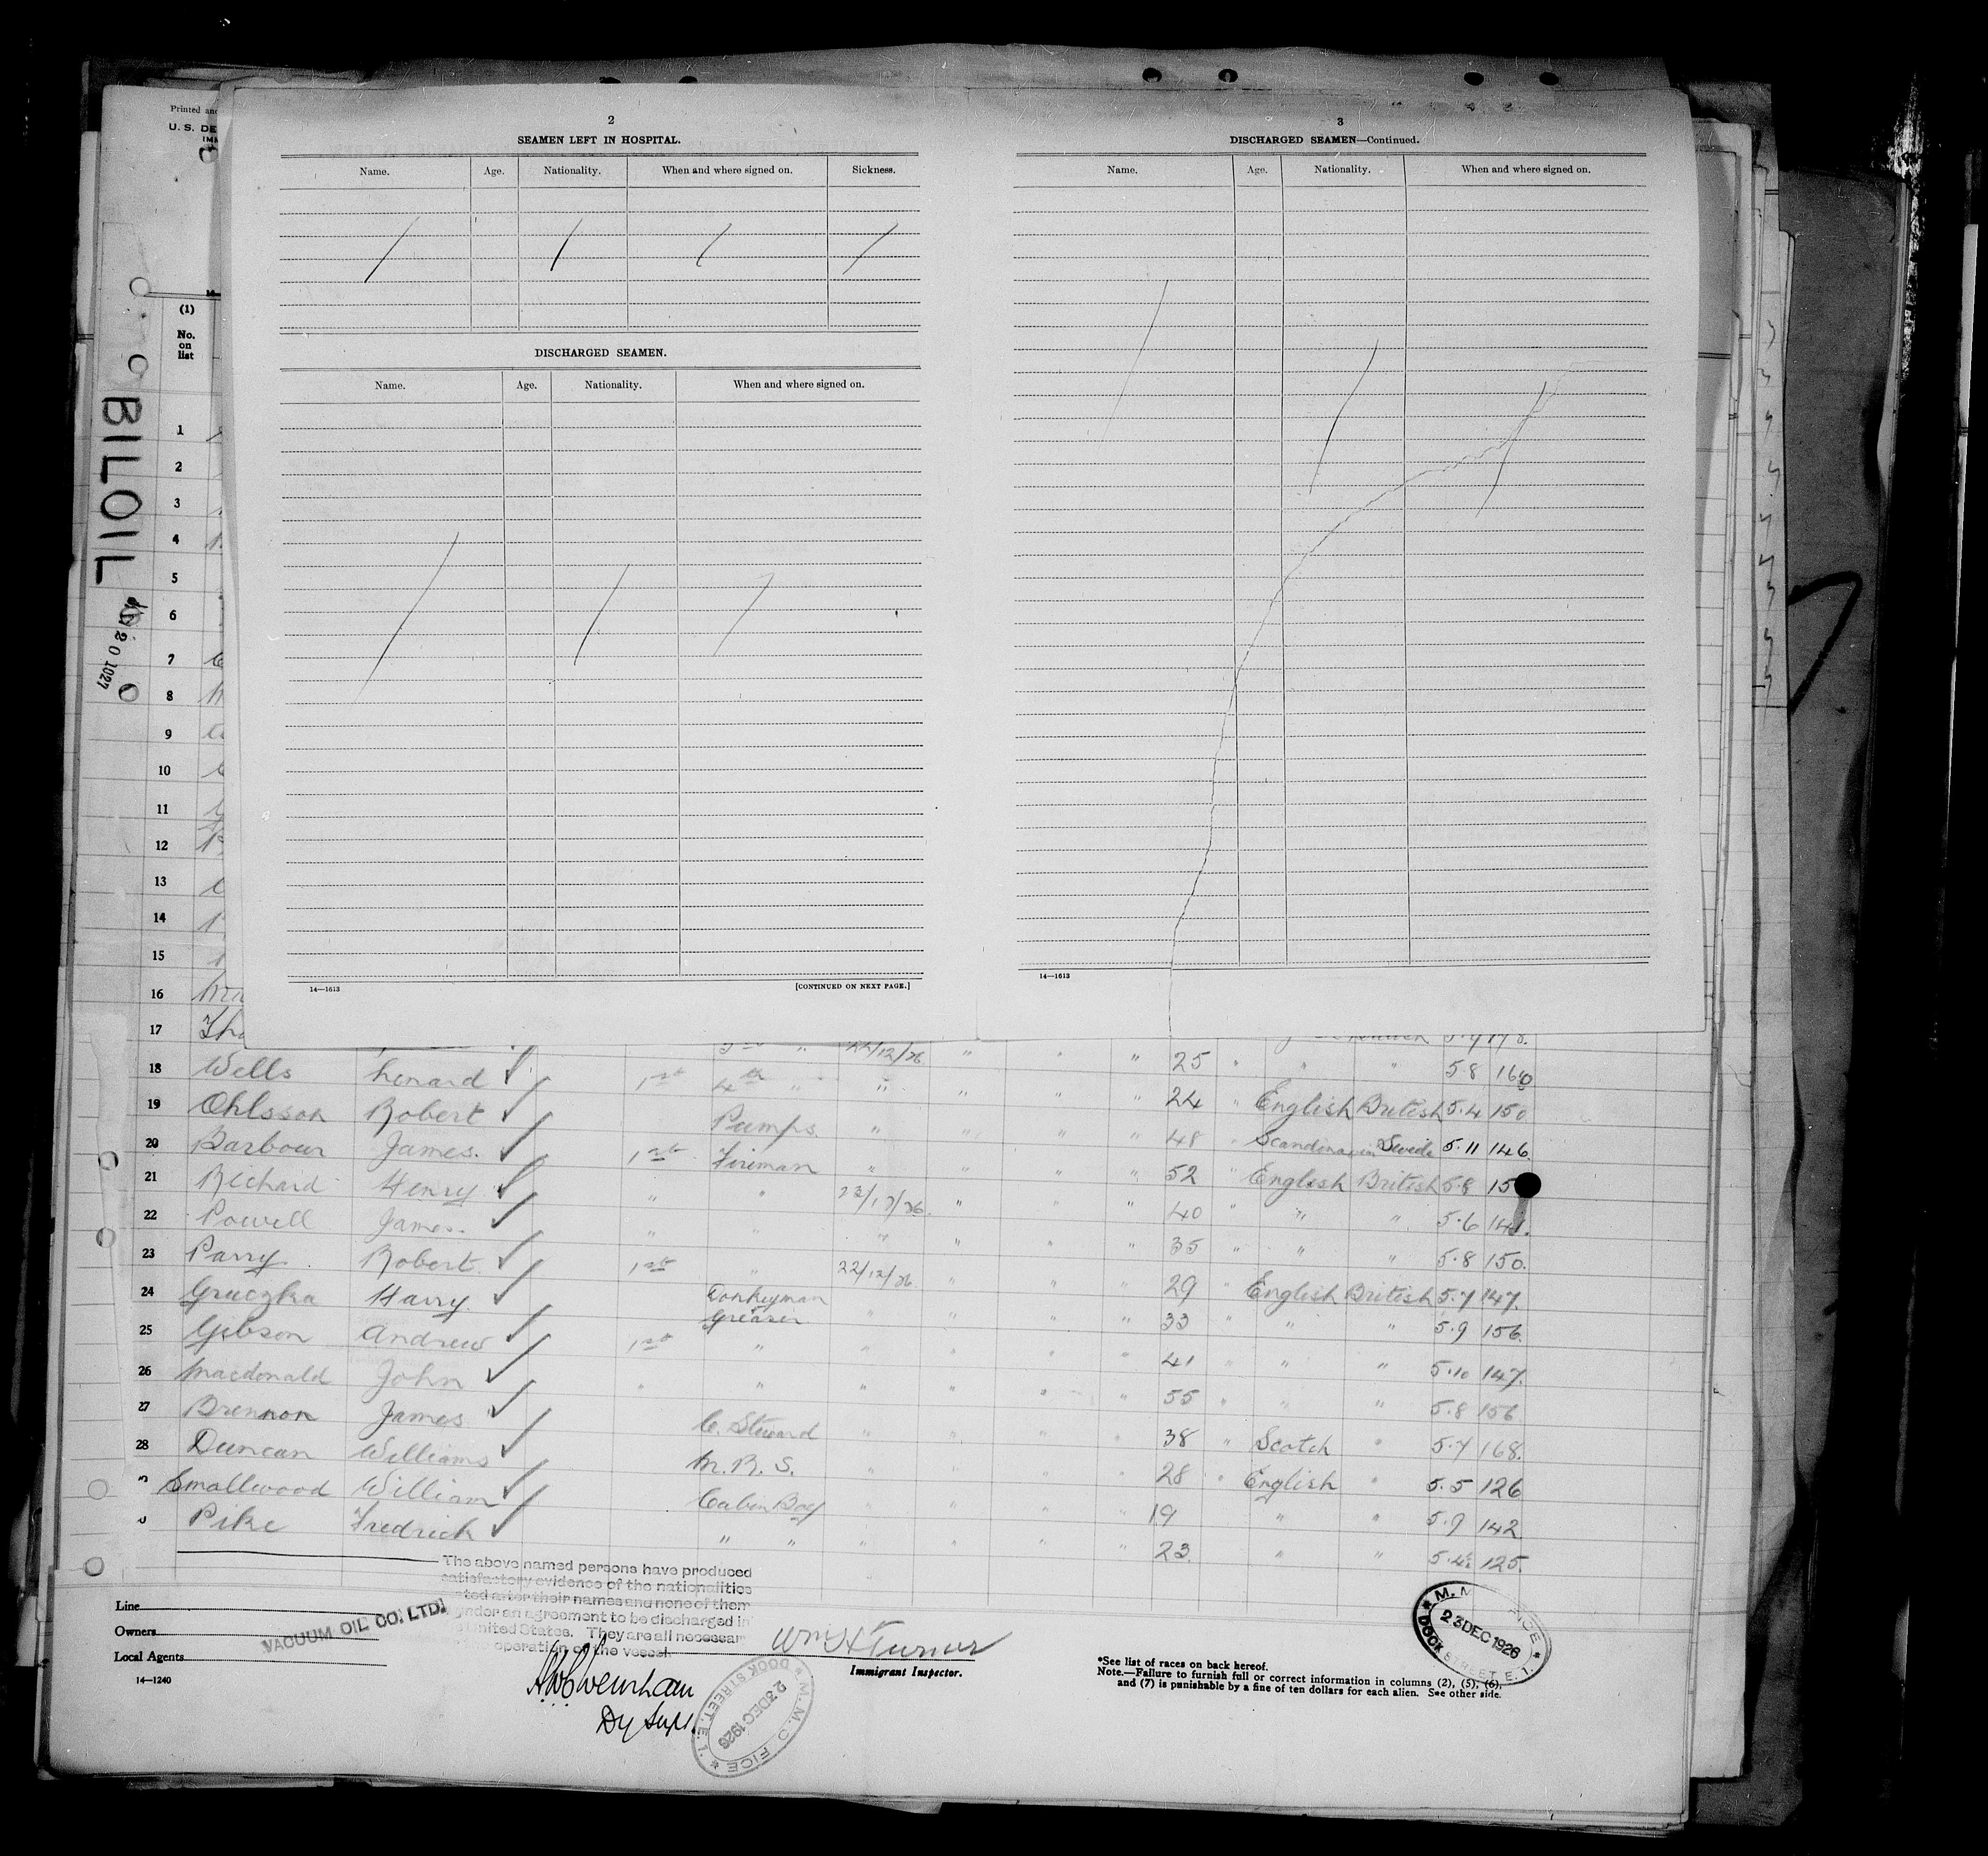 Printed and
U. S. DE
IMM
2
SEAMEN LEFT IN HOSPITAL.
Name. Age. Nationality. When and where signed on. Sickness.
DISCHARGED SEAMEN.
Name. Age. Nationality. When and where signed on.
14—1613 [CONTINUED ON NEXT PAGE.]
3
DISCHARGED SEAMEN—Continued.
Name. Age. Nationality. When and where signed on.
14—1613
BILOIL
(1)
No.
on
list
1
2
3
4
5
6
7
8
9
10
11
12
13
14
15
16
17 Tho
22/12/26 " " "
18 Wells Lenard 1st 4th " " " " " 25 " " " 5.8 160
19 Ohlsson Robert Pumps. " " " " 24 " English British 5.4 150
20 Barbour James. 1st Fireman " " " " 48 " Scandinavian Swede 5.11 146.
21 Richard Henry " " 23/12/26. " " " 52 " English British 5.8 15
22 Powell James. " " " " " " 40 " " " 5.6 141.
23 Parry Robert. 1st " 22/12/26 " " " 35 " " " 5.8 150.
24 Gruczka Harry. Donkeyman " " " 29 " English British 5.7 147.
25 Gibson Andrew 1st Greaser " " " " 33 " " " 5.9 156.
26 Macdonald John " " " " " " 41 " " " 5.10 147.
27 Brennon James " " " " 55 " " " 5.8 156
28 Duncan Williams C. Steward " " " " 38 " Scotch " 5.7 168.
Smallwood William M.R.S. " " " " 28 " English " 5.5 126
Pike Fredrick Cabin Boy " " " " 19 " " 5.9 142
" " " " " " 23. " " 5.4½ 125.
The above named persons have produced
satisfactory evidence of the nationalities
ted after their names and none of them
under an agreement to be discharged in
United States. They are all necessar
operation of the vessel.
Line
Owners VACUUM OIL CO. LTD.
Local Agents
14—1240
Wm H Turner
Immigrant Inspector.
Dy Supt.
M.M.O FICE
23 DEC 1926
DOCK STREET. E. 1.
M. M FICE
23 DEC 1926
DOCK STREET. E. 1.
*See list of races on back hereof.
Note.—Failure to furnish full or correct information in columns (2), (5), (6),
and (7) is punishable by a fine of ten dollars for each alien. See other side.